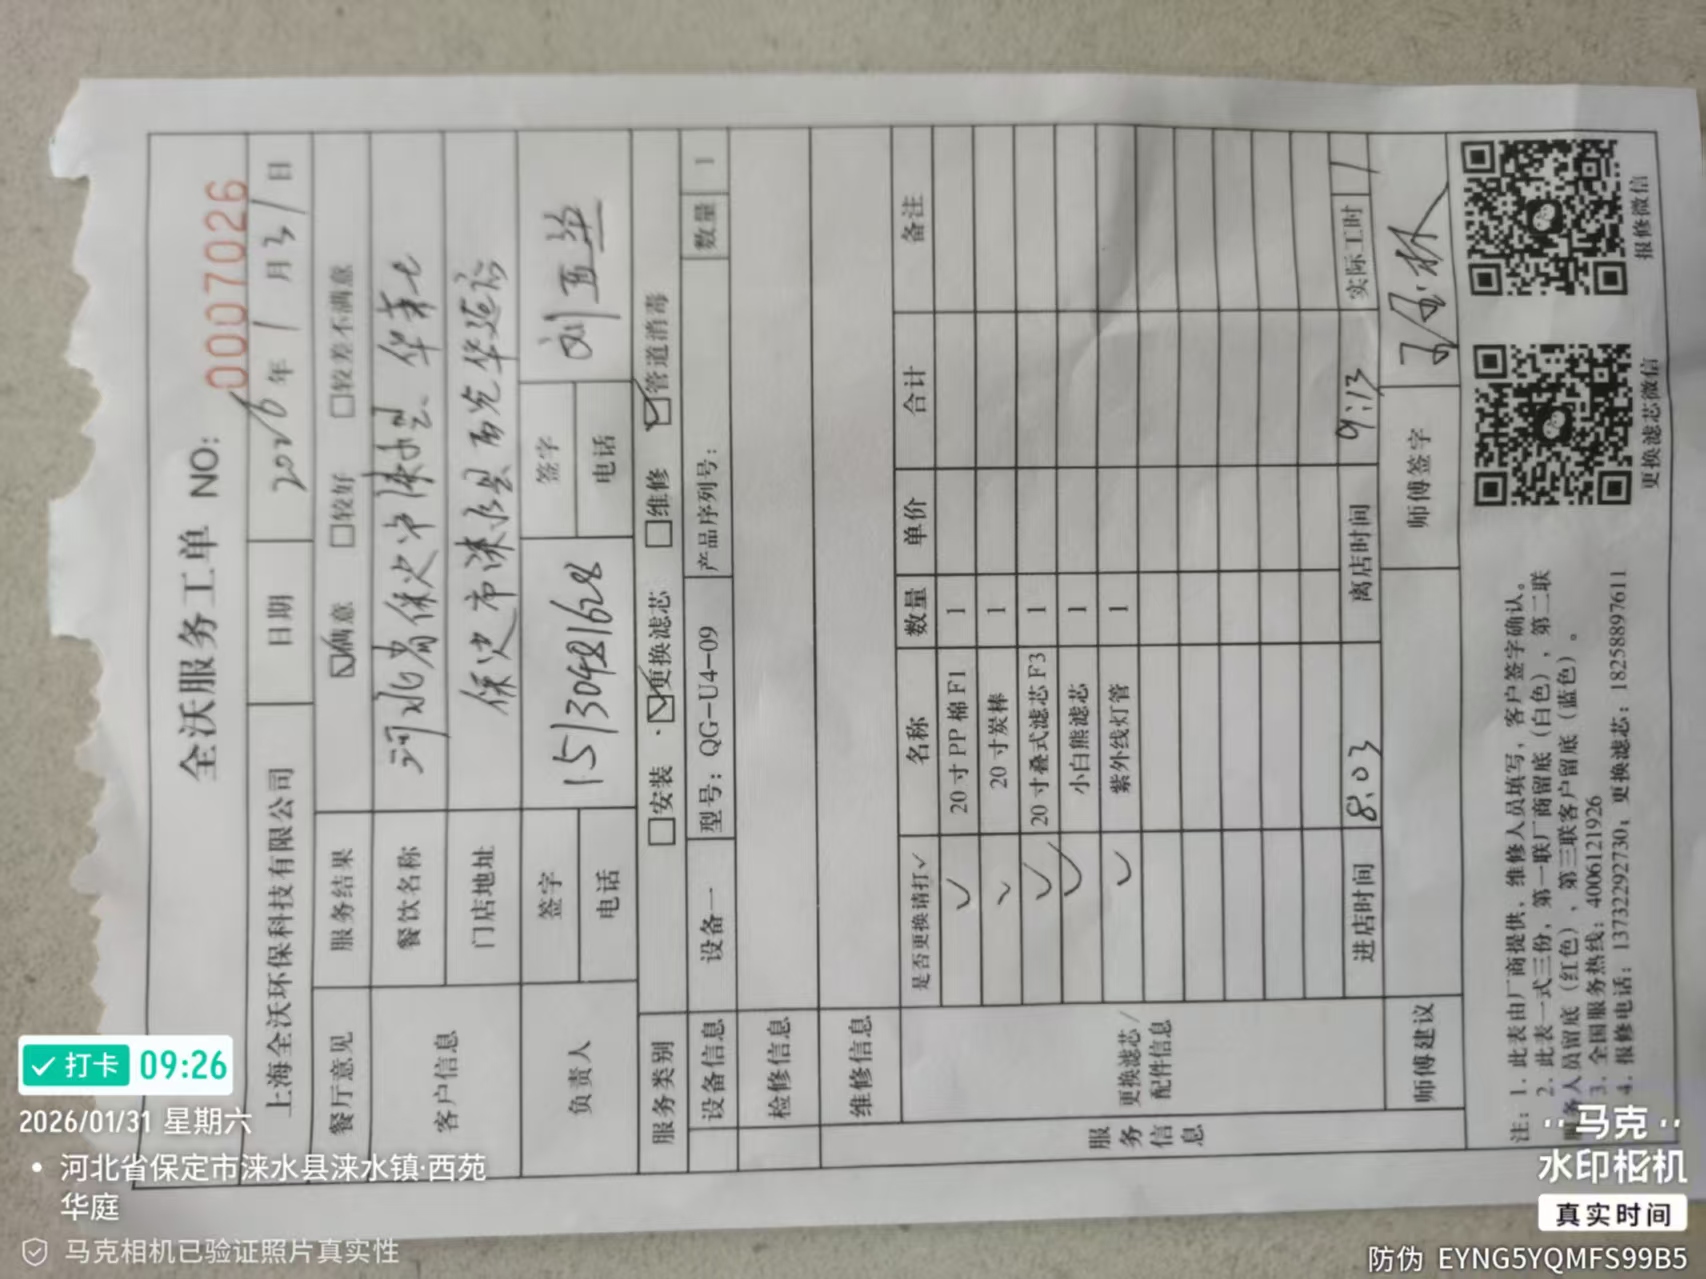 全沃服务工单 NO: 00007026
上海全沃环保科技有限公司 日期 2026年1月31日
餐厅意见 服务结果 ☑满意 □较好 □较差不满意
客户信息 餐饮名称 河北省保定市涞水县
门店地址 保定市涞水县西苑华庭
负责人 签字 签字 刘亚华
电话 15130481628 电话
服务类别 □安装 ☑更换滤芯 □维修 ☑管道消毒
设备信息 设备一 型号: QG-U4-09 产品序列号: 数量 1
检修信息
维修信息
服务信息 更换滤芯/配件信息
是否更换请打✓ 名称 数量 单价 合计 备注
✓ 20寸PP棉F1 1
✓ 20寸炭棒 1
✓ 20寸叠式滤芯F3 1
✓ 小白熊滤芯 1
✓ 紫外线灯管 1
进店时间 8:03 离店时间 9:13 实际工时 1
师傅建议 师傅签字
注: 1. 此表由厂商提供, 维修人员填写, 客户签字确认。
2. 此表一式三份, 第一联厂商留底 (白色) , 第二联
服务人员留底 (红色) , 第三联客户留底 (蓝色) 。
3. 全国服务热线: 4006121926
4. 报修电话: 13732292730; 更换滤芯: 18258897611
更换滤芯微信 报修微信
打卡 09:26
2026/01/31 星期六
河北省保定市涞水县涞水镇·西苑
华庭
马克相机已验证照片真实性
马克
水印相机
真实时间
防伪 EYNG5YQMFS99B5